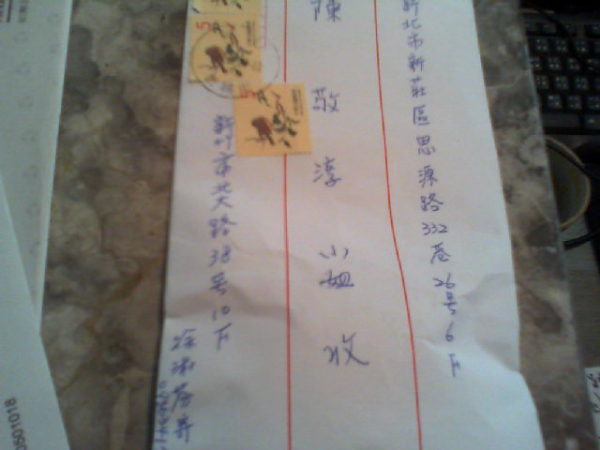 新北市新莊區思源路332巷26号6F
陳敬淳小姐 收
新竹市北大路38号10F
5
5
0501018